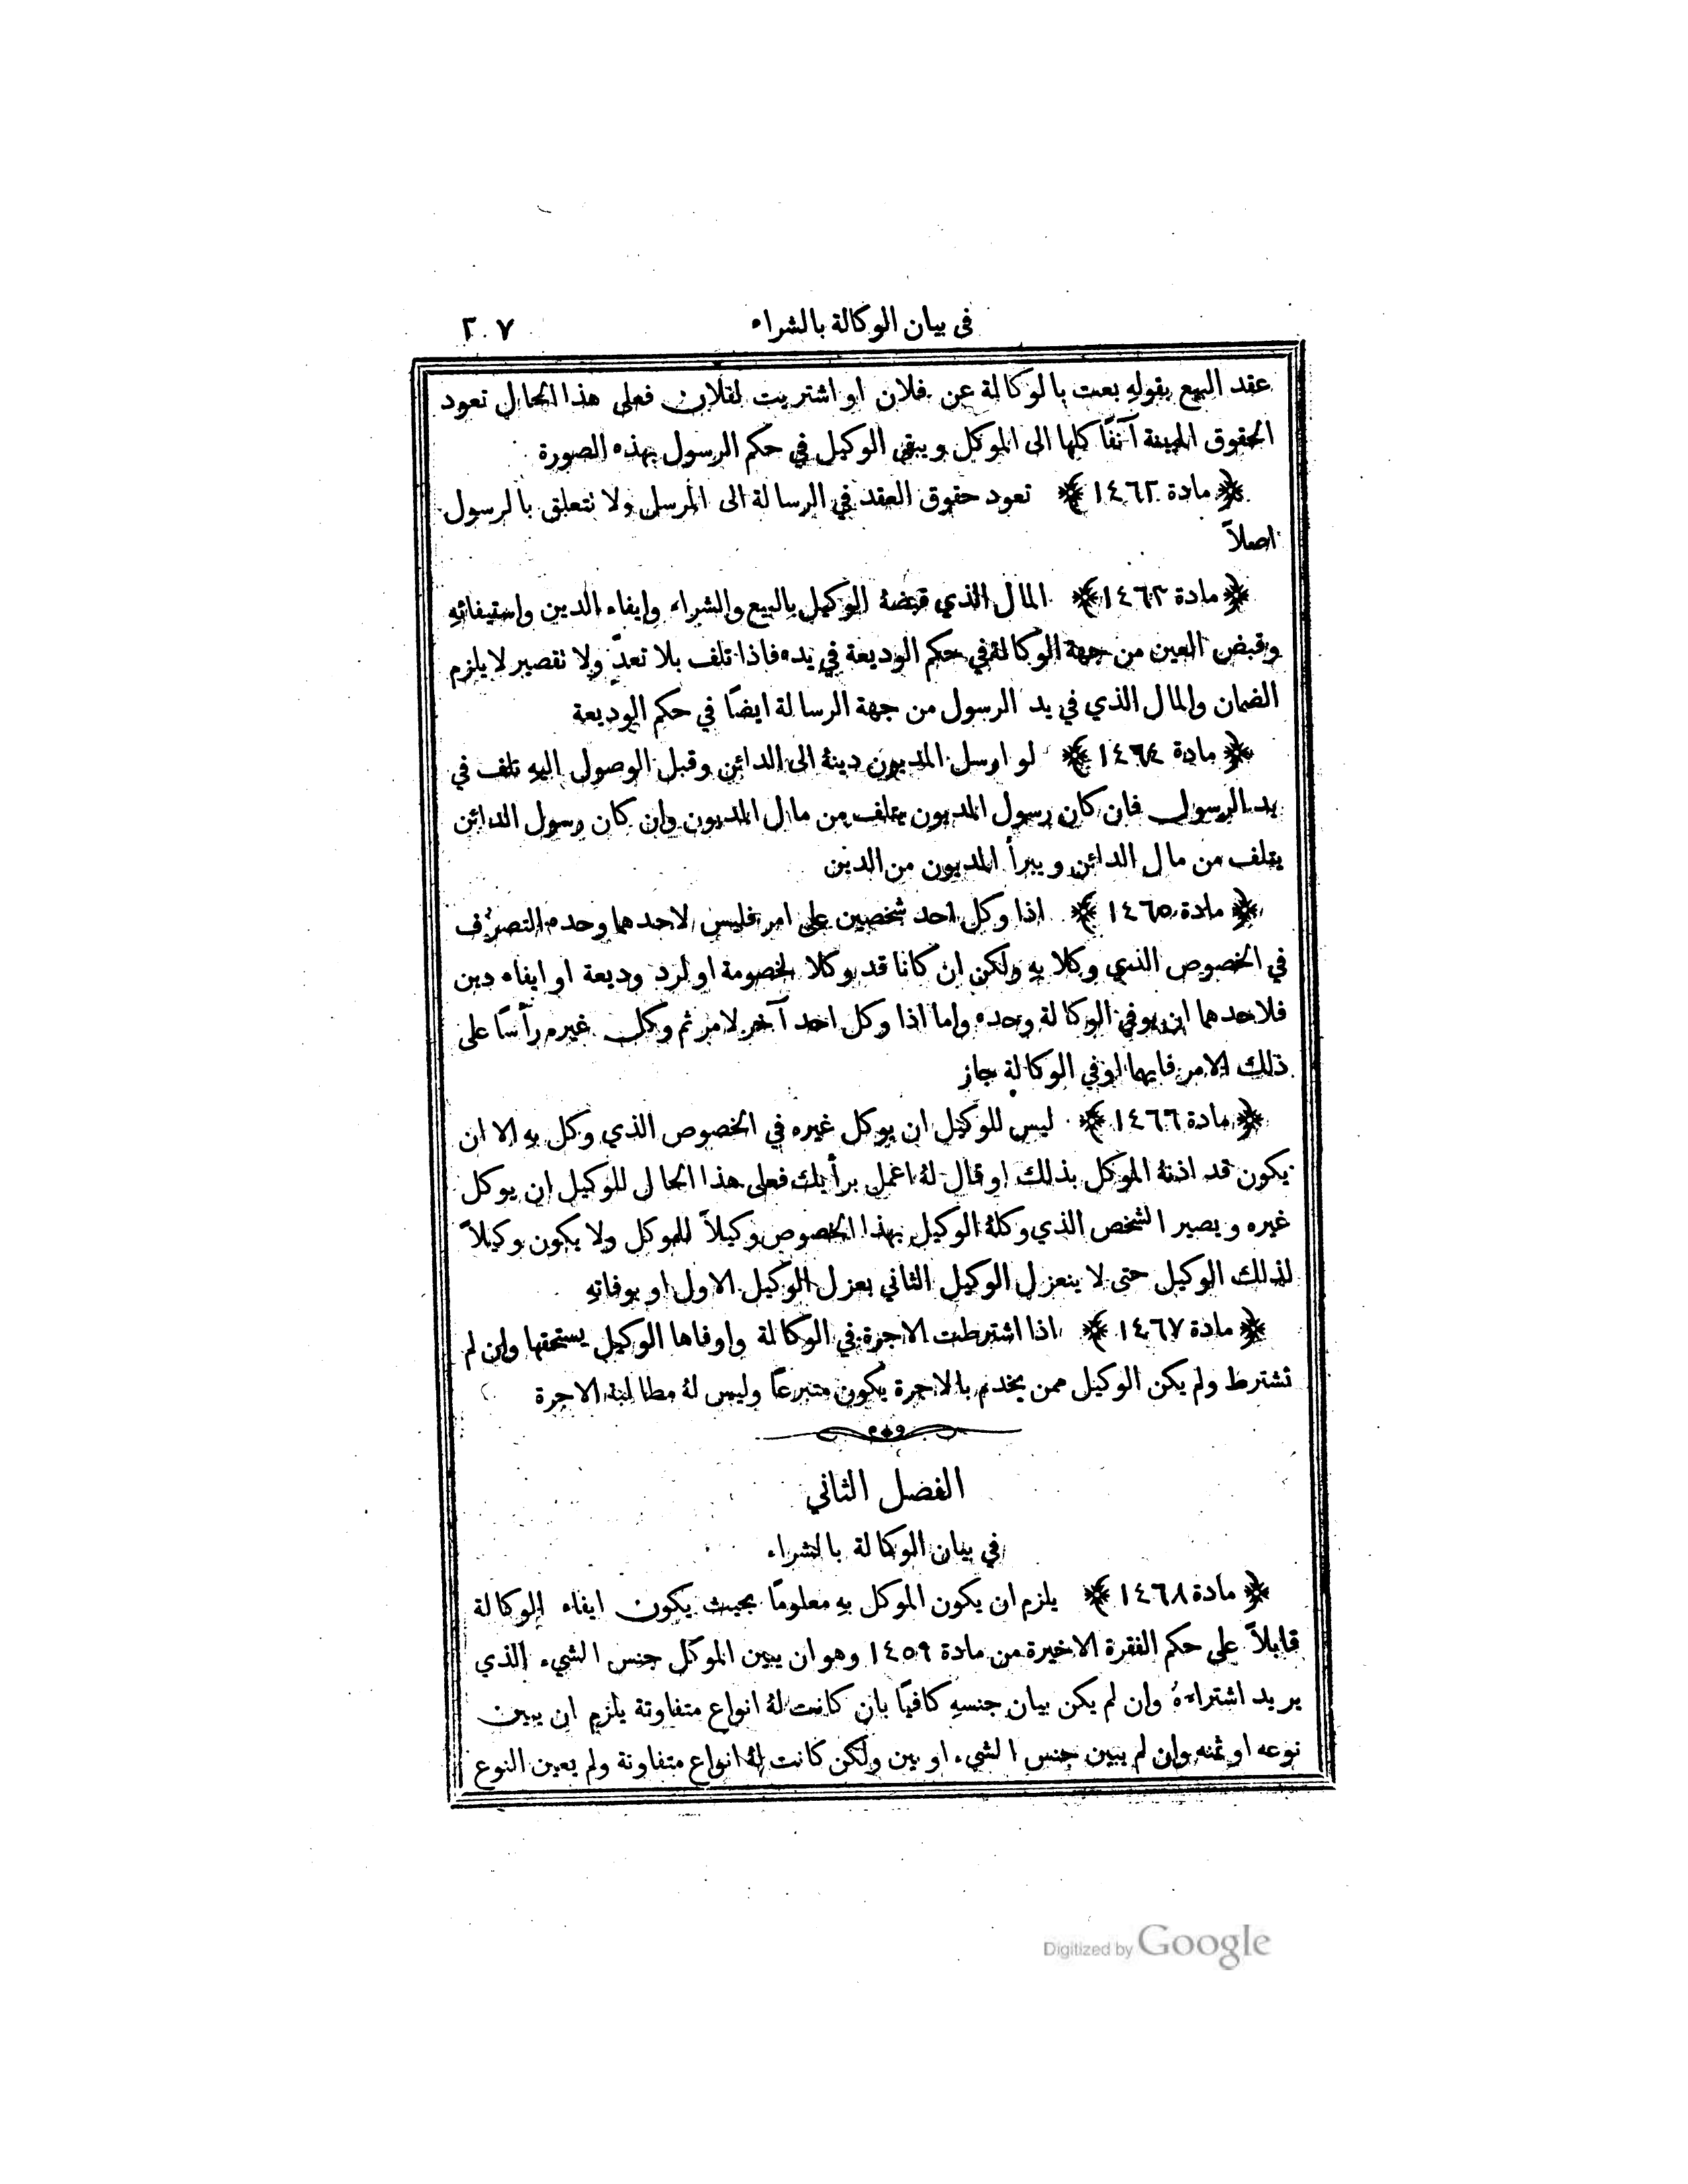 في بيان الوكالة بالشراء ٢٠٧
عقد البيع بقولهِ بعت بالوكالة عن فلان او اشتريت لفلان فعلى هذا الحال تعود
الحقوق المبينة آنفًا كلها الى الموكل ويبقى الوكيل في حكم الرسول بهذه الصورة
﴿ مادة ١٤٦٢ ﴾ تعود حقوق العقد في الرسالة الى المرسل ولا تتعلق بالرسول
اصلاً
﴿ مادة ١٤٦٣ ﴾ المال الذي قبضهُ الوكيل بالبيع والشراء وإيفاء الدين واستيفائهِ
وقبض العين من جهة الوكالة في حكم الوديعة في يده فاذا تلف بلا تعدٍّ ولا تقصير لا يلزم
الضمان والمال الذي في يد الرسول من جهة الرسالة ايضًا في حكم الوديعة
﴿ مادة ١٤٦٤ ﴾ لو ارسل المديون دينهُ الى الدائن وقبل الوصول اليهِ تلف في
يد الرسول فان كان رسول المديون يتلف من مال المديون وإن كان رسول الدائن
يتلف من مال الدائن ويبرأ المديون من الدين
﴿ مادة ١٤٦٥ ﴾ اذا وكل احد شخصين على امر فليس لاحدهما وحده التصرُّف
في الخصوص الذي وكلا بهِ ولكن ان كانا قد وكلا لخصومة او لرد وديعة او ايفاء دين
فلاحدهما ان يوفي الوكالة وحده واما اذا وكل احد آخر لامر ثم وكل غيره رأسًا على
ذلك الامر فايهما اوفي الوكالة جاز
﴿ مادة ١٤٦٦ ﴾ ليس للوكيل ان يوكل غيره في الخصوص الذي وكل بهِ الا ان
يكون قد اذنهُ الموكل بذلك او قال لهُ اعمل برأيك فعلى هذا الحال للوكيل ان يوكل
غيره ويصير الشخص الذي وكلهُ الوكيل بهذا الخصوص وكيلاً للموكل ولا يكون وكيلاً
لذلك الوكيل حتى لا ينعزل الوكيل الثاني بعزل الوكيل الاول او بوفاتهِ
﴿ مادة ١٤٦٧ ﴾ اذا اشترطت الاجرة في الوكالة واوفاها الوكيل يستحقها وإن لم
تشترط ولم يكن الوكيل ممن يخدم بالاجرة يكون متبرعًا وليس لهُ مطالبة الاجرة
الفصل الثاني
في بيان الوكالة بالشراء
﴿ مادة ١٤٦٨ ﴾ يلزم ان يكون الموكل بهِ معلومًا بحيث يكون ايفاء الوكالة
قابلاً على حكم الفقرة الاخيرة من مادة ١٤٥٩ وهو ان يبين الموكل جنس الشيء الذي
يريد اشتراءهُ وان لم يكن بيان جنسهِ كافيًا بان كانت لهُ انواع متفاوتة يلزم ان يبين
نوعه او ثمنه وإن لم يبين جنس الشيء او بين ولكن كانت لهُ انواع متفاوتة ولم يعين النوع
Digitized by Google